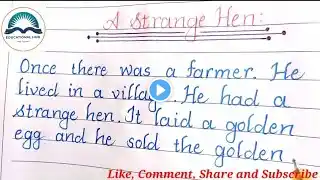 EDUCATIONAL HUB
A Strange Hen:
Once there was a farmer. He
lived in a village. He had a
strange hen. It laid a golden
egg and he sold the golden
Like, Comment, Share and Subscribe